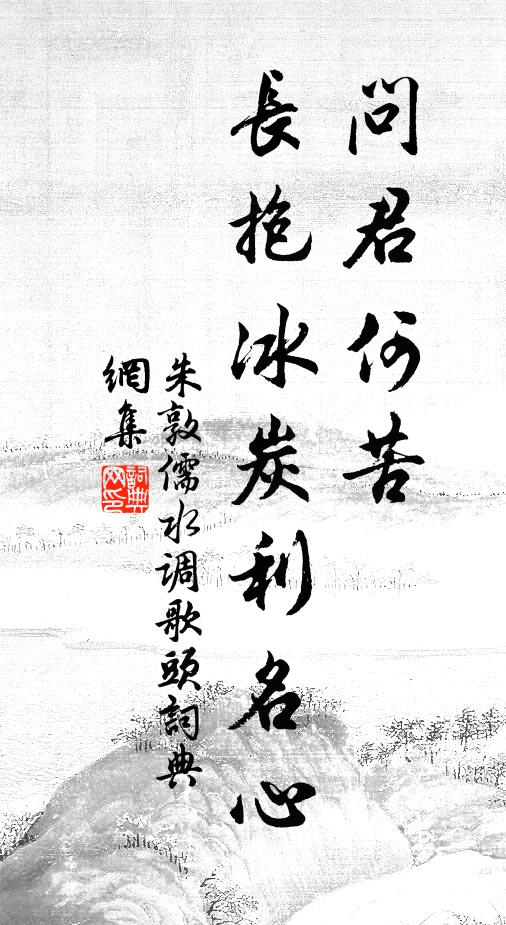 問君何苦
長抱冰炭利名心
朱敦儒水调歌頭詞典
網集
詞典
网印